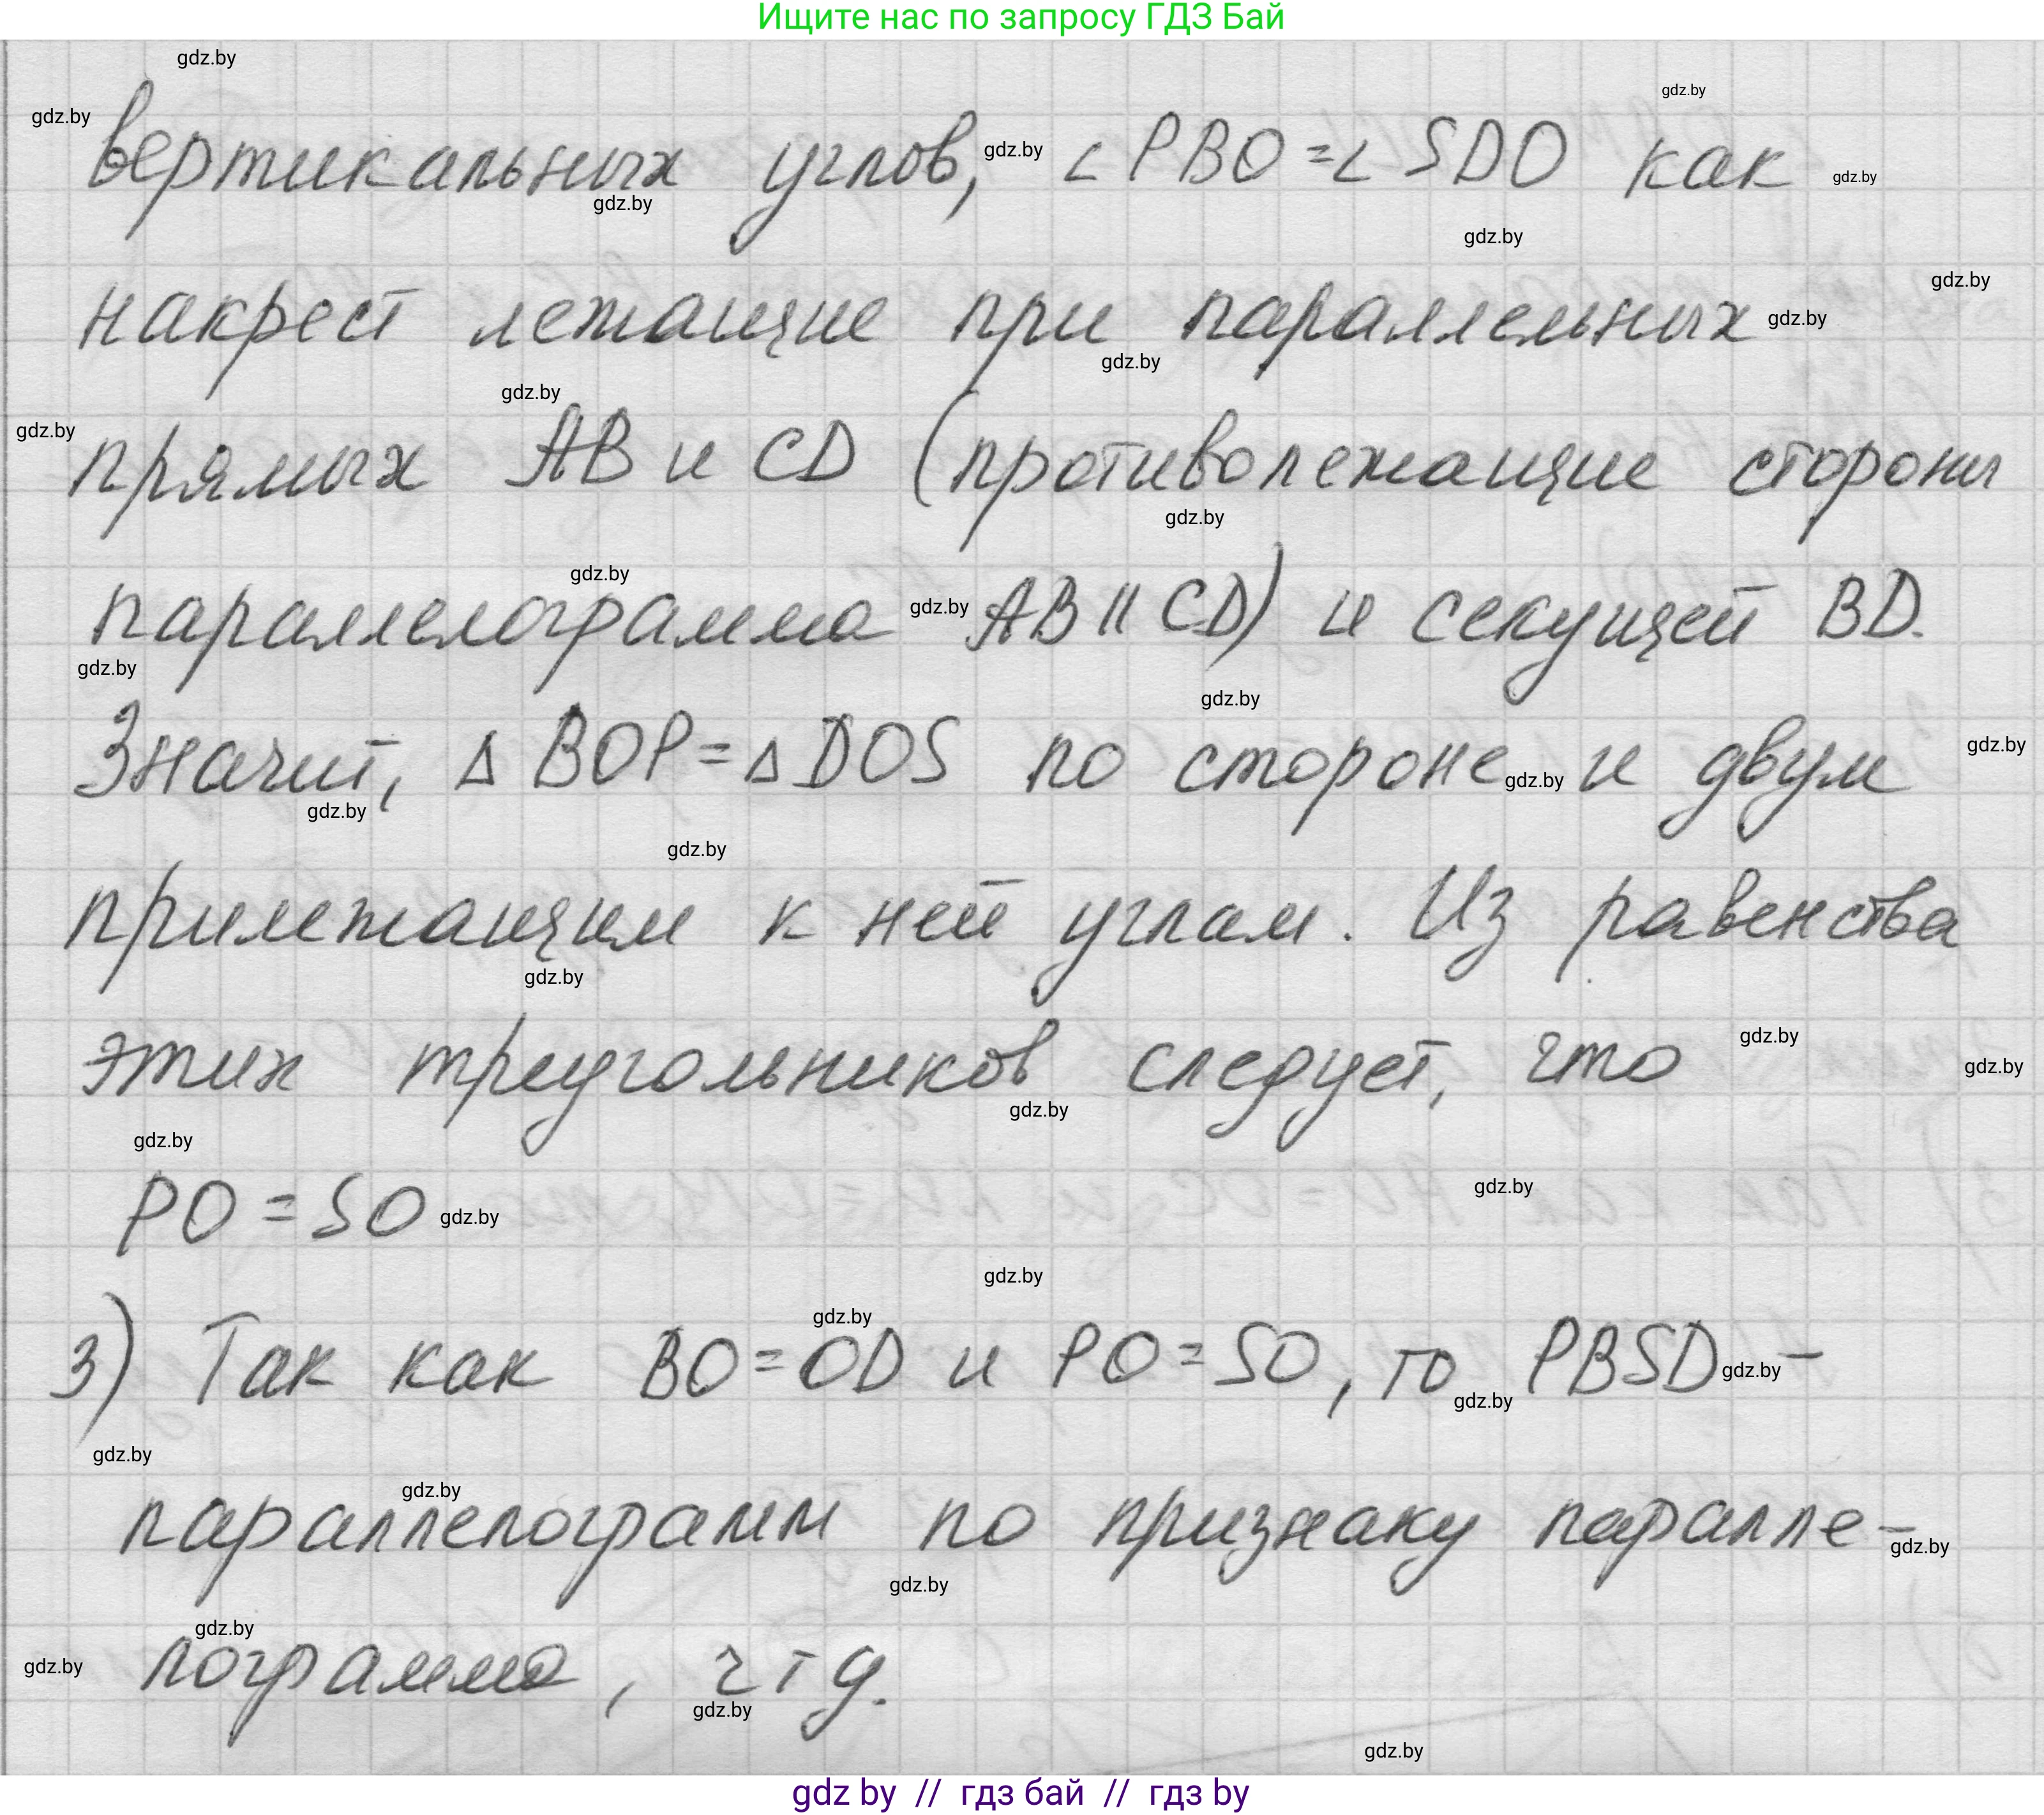 Ищите нас по запросу ГДЗ Бай
gdz.by
gdz.by
gdz.by
вертикальных углов, gdz.by ∠PBO=∠SDO как gdz.by
gdz.by
gdz.by
gdz.by
накрест лежащие при параллельных gdz.by
gdz.by
gdz.by
gdz.by
прямых AB и CD (противолежащие стороны
gdz.by
gdz.by
параллелограмма gdz.by AB || CD) и секущей BD.
gdz.by
gdz.by
Значит, Δ BOP=Δ DOS по стороне gdz.by и двум gdz.by
gdz.by
gdz.by
прилежащим к ней углам. Из равенства
gdz.by
gdz.by
этих треугольников следует, что gdz.by
gdz.by
gdz.by
gdz.by
PO=SO gdz.by
gdz.by
gdz.by
3) Так как BO=OD и PO=SO, то PBSD gdz.by –
gdz.by
gdz.by
gdz.by
параллелограмм по признаку паралле-
gdz.by
gdz.by
gdz.by
gdz.by лограмма, чтд.
gdz.by
gdz.by
gdz by // гдз бай // гдз by